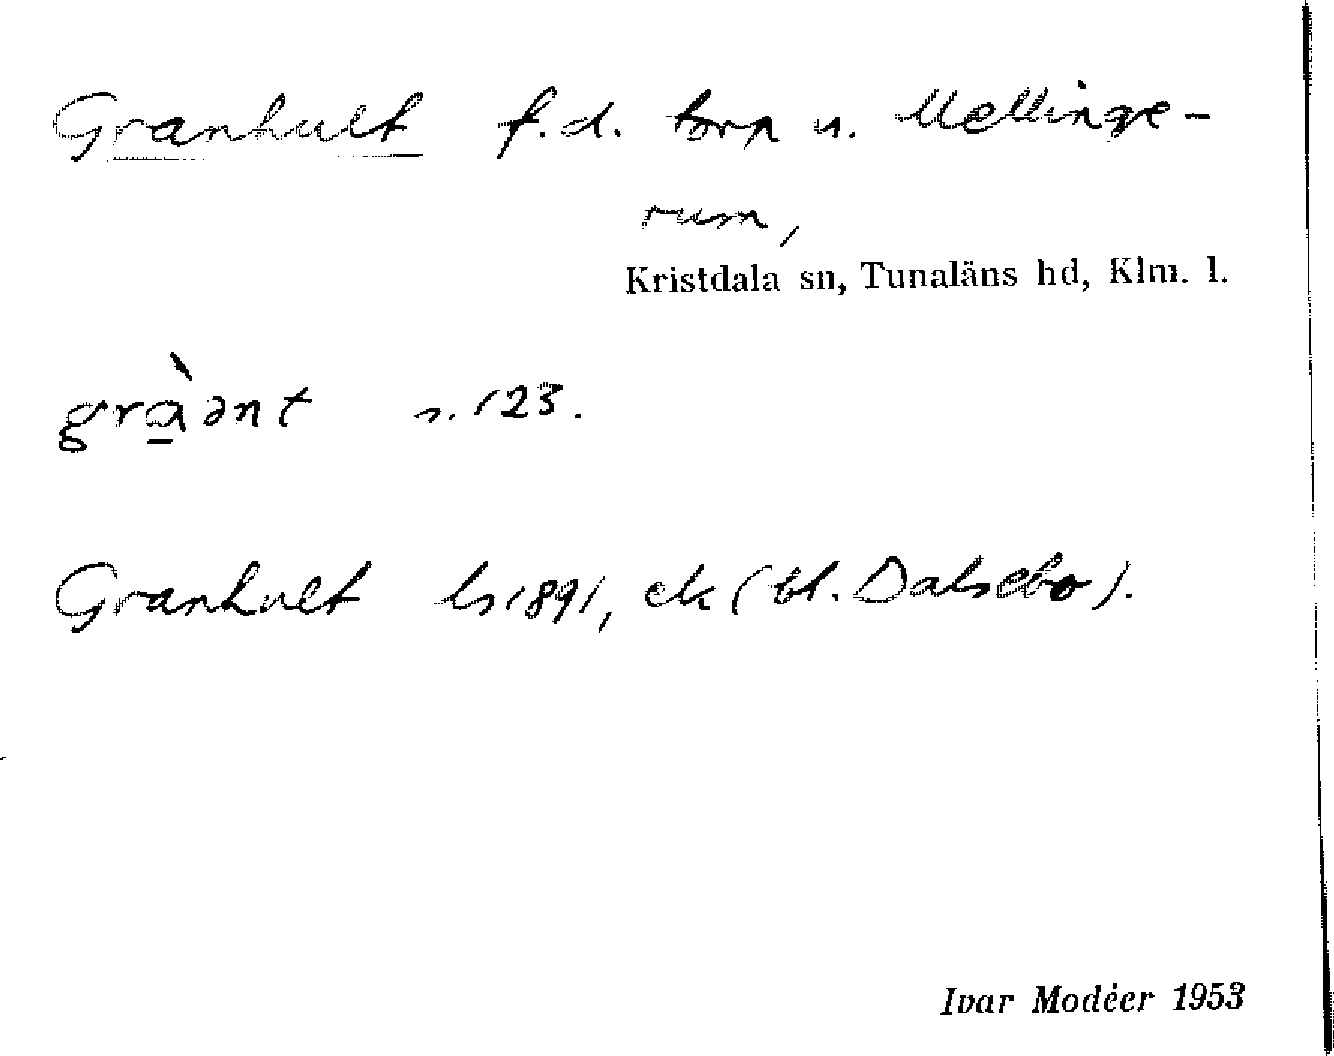 Granhult f.d. torp u. Mellinge-
rum,
Kristdala sn, Tunaläns hd, Klm. l.
grà̱ənt s. 123.
Granhult ls 1891, ek (bl. Dalsebo).
Ivar Modéer 1953